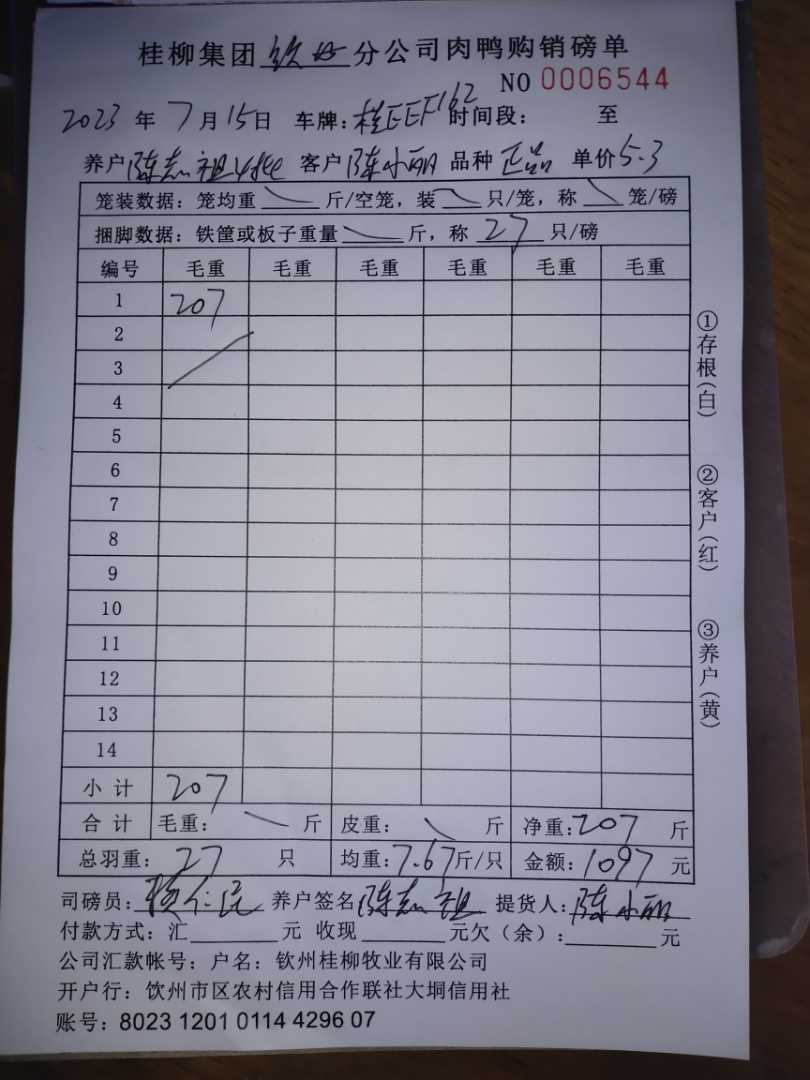 桂柳集团 钦州 分公司肉鸭购销磅单
NO 0006544
2023 年 7 月 15 日 车牌: 桂EEF162 时间段: 至
养户 陈志祖 客户 陈小丽 品种 正品 单价 5.3
笼装数据: 笼均重 斤/空笼, 装 只/笼, 称 笼/磅
捆脚数据: 铁筐或板子重量 斤, 称 27 只/磅
编号 毛重 毛重 毛重 毛重 毛重 毛重
1 207
2
3
4
5
6
7
8
9
10
11
12
13
14
小计 207
合计 毛重: 斤 皮重: 斤 净重: 207 斤
总羽重: 27 只 均重: 7.67 斤/只 金额: 1097 元
司磅员: 养户签名 陈志祖 提货人: 陈小丽
付款方式: 汇 元 收现 元欠(余): 元
公司汇款帐号: 户名: 钦州桂柳牧业有限公司
开户行: 饮州市区农村信用合作联社大垌信用社
账号: 8023 1201 0114 4296 07
①存根(白)
②客户(红)
③养户(黄)